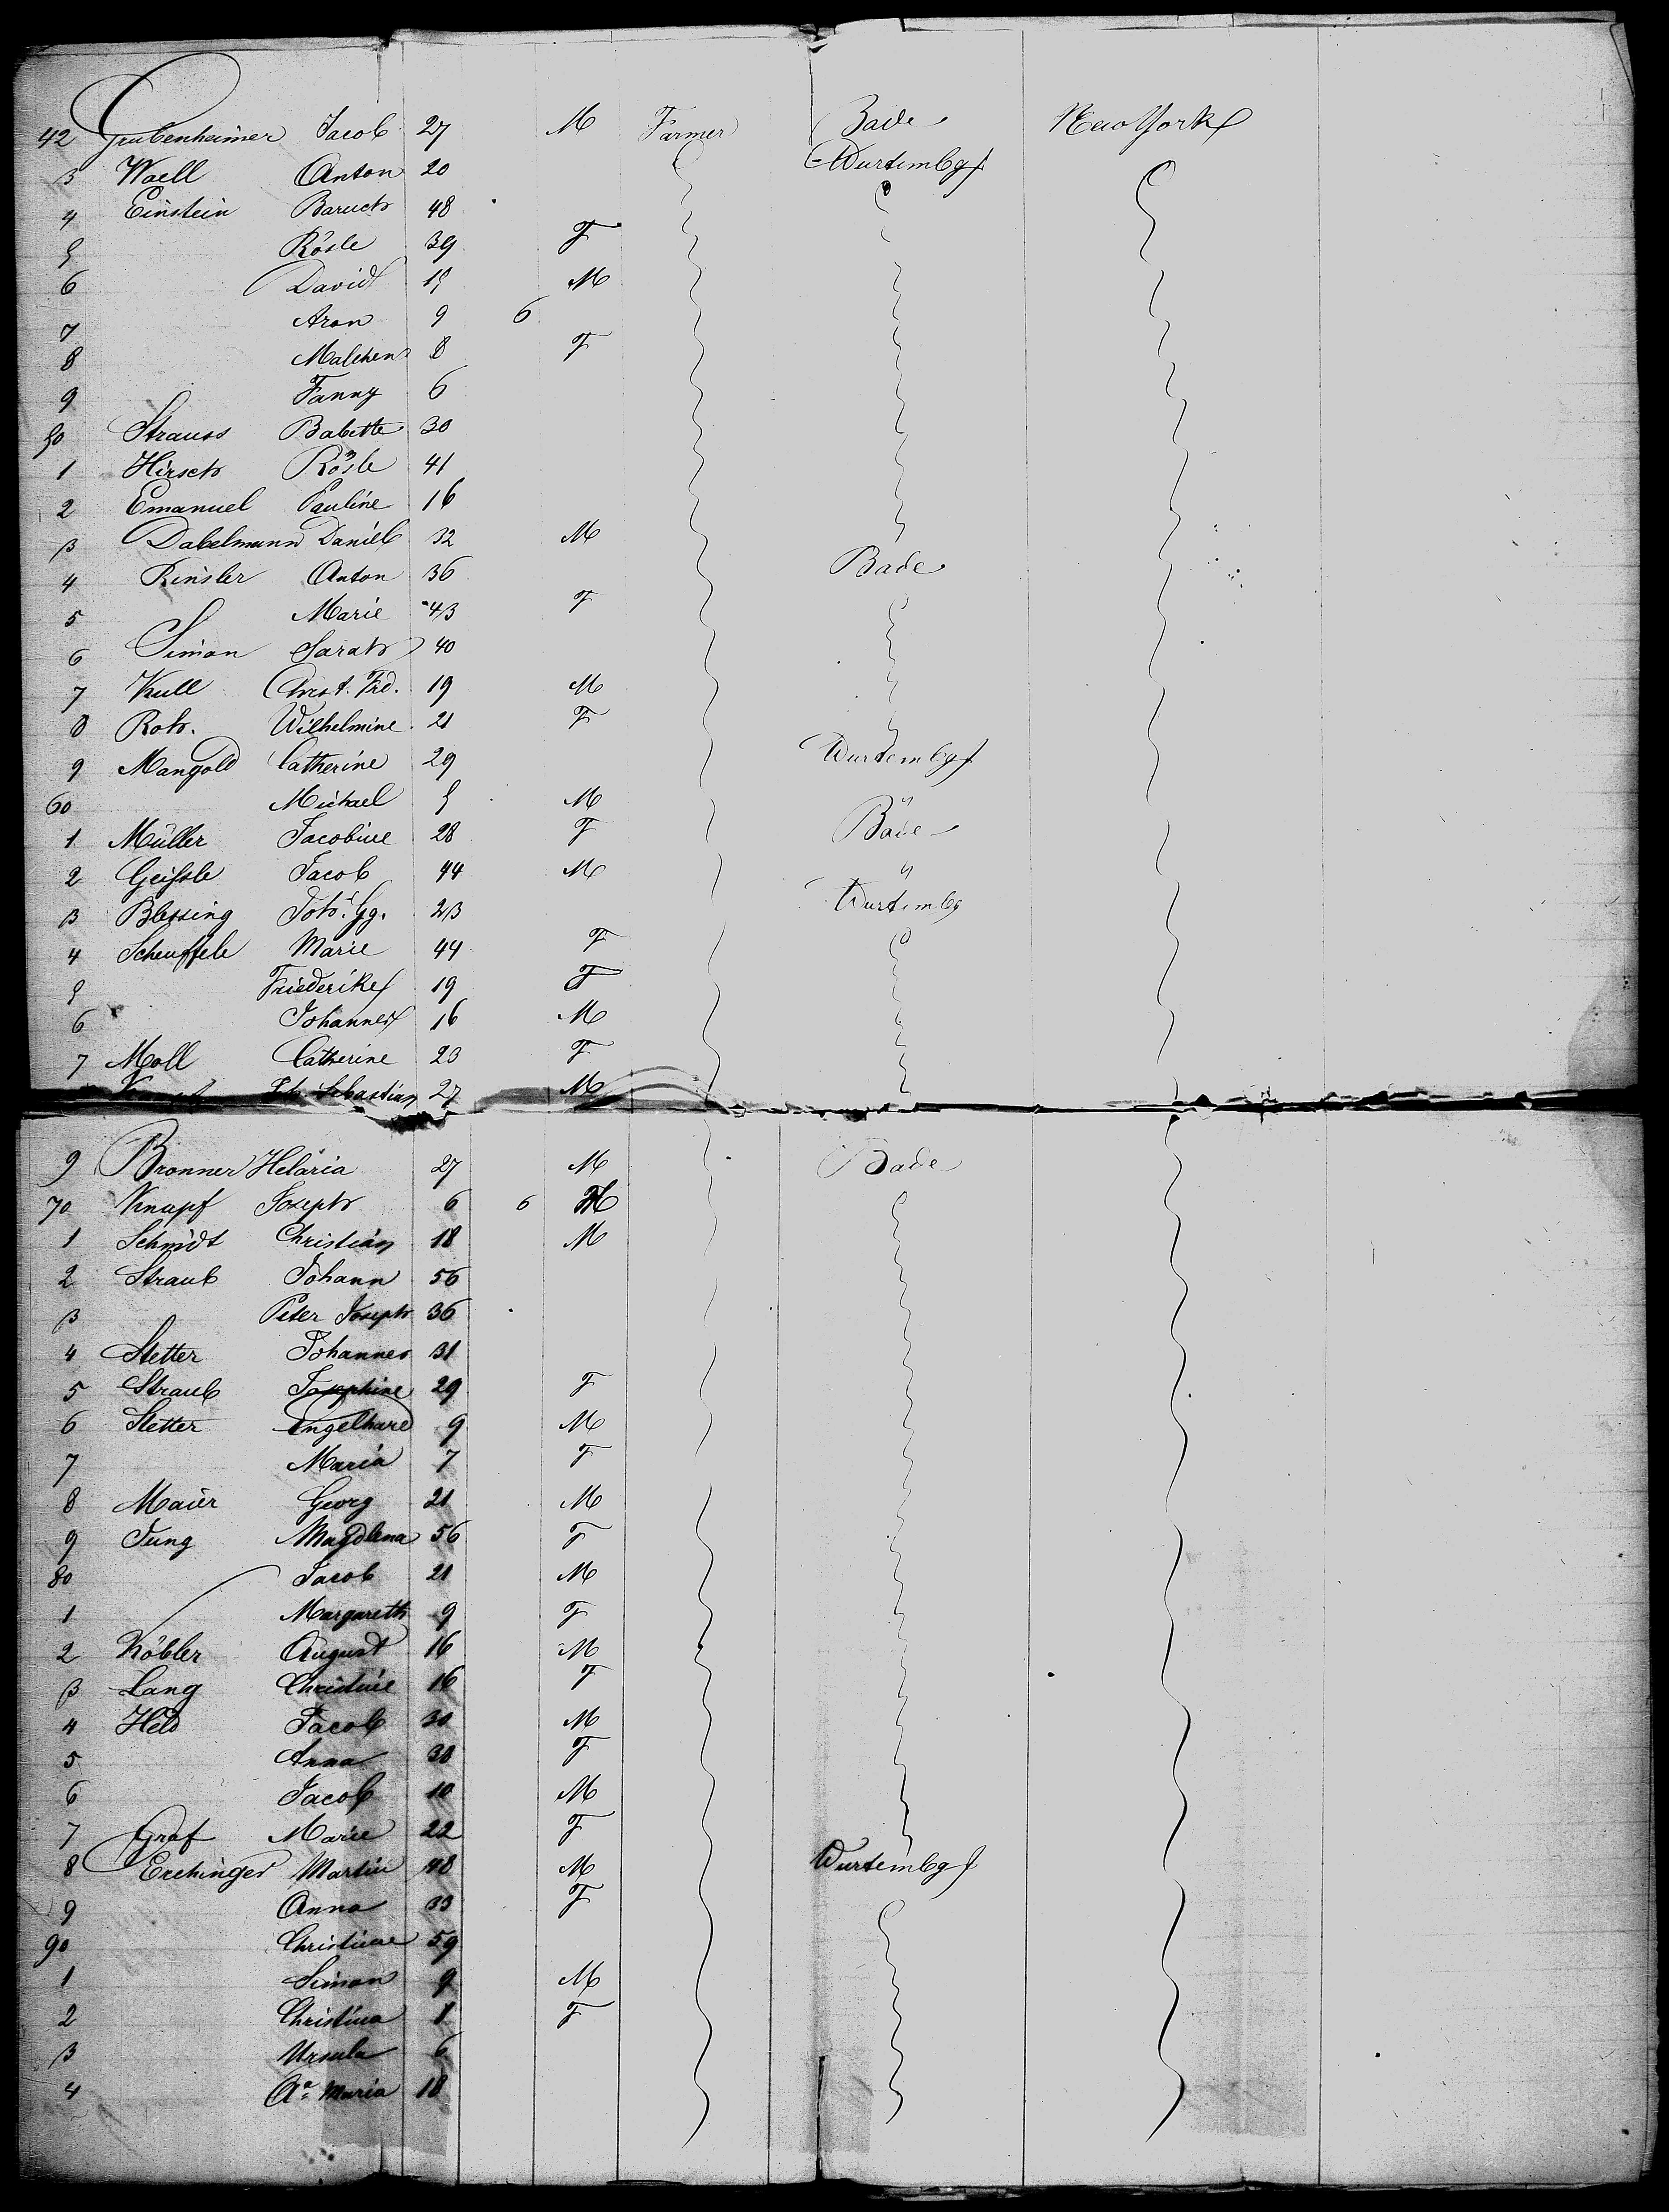 42 Grubenheimer Jacob 27 M Farmer Bade New York
3 Waell Anton 20 Wurtembg
4 Einstein Baruch 48
5 Rösle 39 F
6 David 15 M
7 Aron 9 6
8 Malchen 8 F
9 Fanny 6
50 Strauss Babette 30
1 Hirsch Rösle 41
2 Emanuel Pauline 16
3 Dabelmann Daniel 32 M
4 Rinsler Anton 36 Bade
5 Marie 43 F
6 Simon Sarah 40
7 Kull Christ. Frd. 19 M
8 Roth. Wilhelmine 21 F
9 Mangold Catherine 29 Wurtembg
60 Michael 5 M "
1 Müller Jacobine 28 F Bade
2 Geissle Jacob 44 M "
3 Blessing Joh. Gg. 23 Wurtembg
4 Scheuffele Marie 44 F
5 Friederike 19 F
6 Johannes 16 M
7 Moll Catherine 23 F
Sebastian 27 M
9 Bronner Helaria 27 M Bade
70 Knapf Joseph 6 6 M
1 Schmidt Christian 18 M
2 Straub Johann 56
3 Peter Joseph 36
4 Stetter Johannes 31
5 Straub Josephine 29 F
6 Stetter Engelhard 9 M
7 Maria 7 F
8 Maier Georg 21 M
9 Jung Magdlena 56 F
80 Jacob 21 M
1 Margareth 9 F
2 Köbler August 16 M
3 Lang Christine 16 F
4 Held Jacob 30 M
5 Anna 30 F
6 Jacob 10 M
7 Graf Marie 22 F
8 Erchinger Martin 48 M Wurtembg
9 Anna 33 F
90 Christine 59
1 Simon 9 M
2 Christina 8 F
3 Ursula 6
4 Aa Maria 18